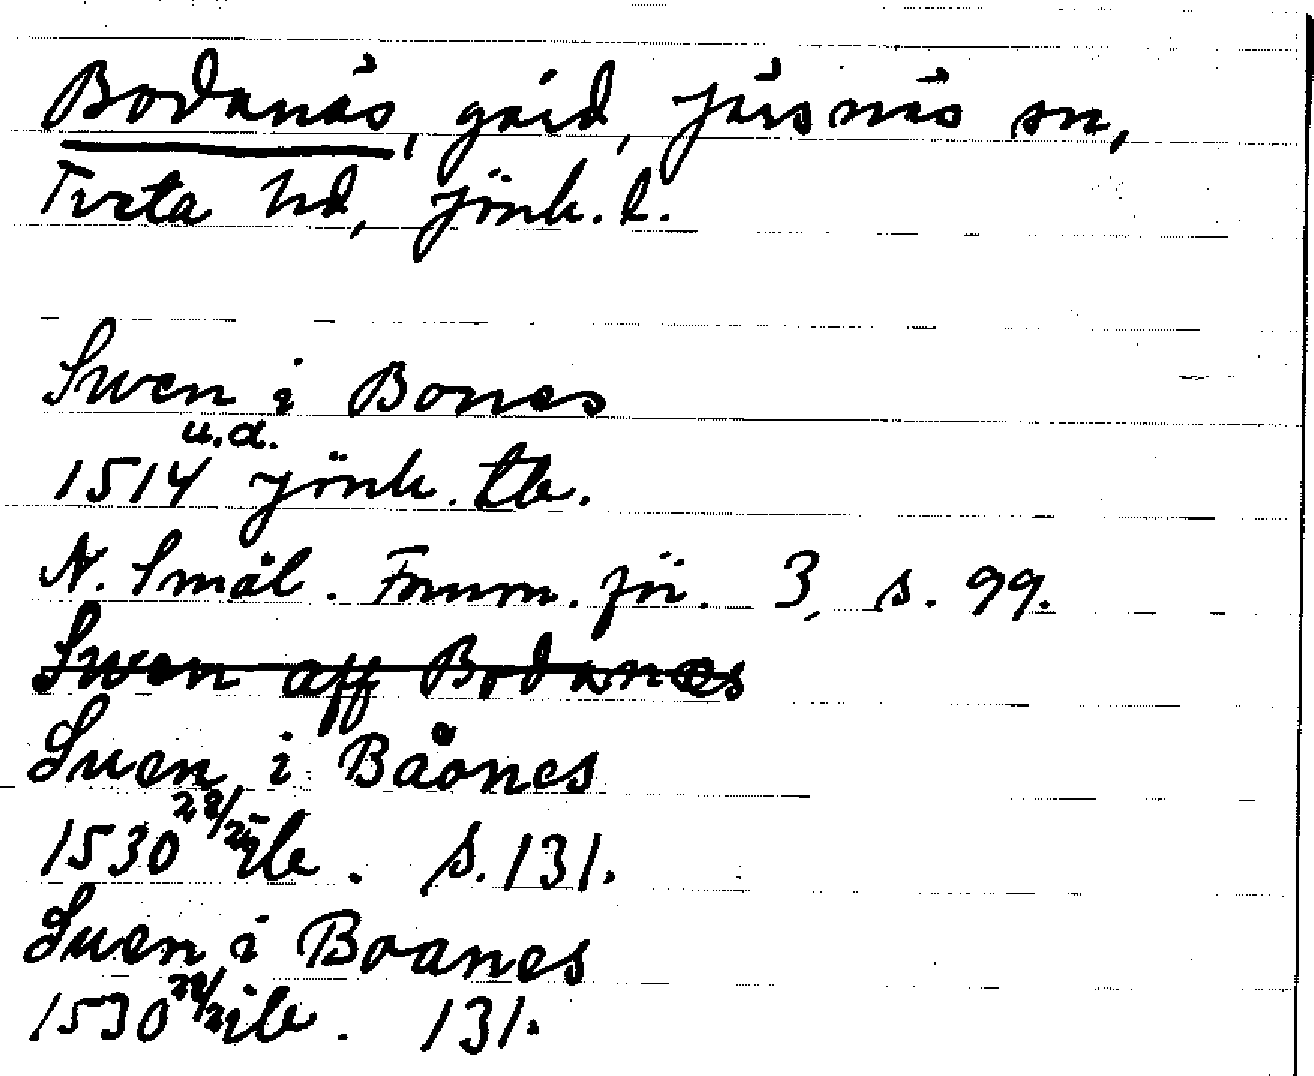 Bodanäs, gård, Järsnäs sn,
Tveta hd, Jönk. l.
Swen i Bones
u.d.
1514 Jönk. tb.
N. Smål. Fornm. för. 3, s. 99.
Swen aff Bodanes
Suen i Båones
1530 22/2 ib. s. 131.
Suen i Boanes
1530 22/2 ib. 131.